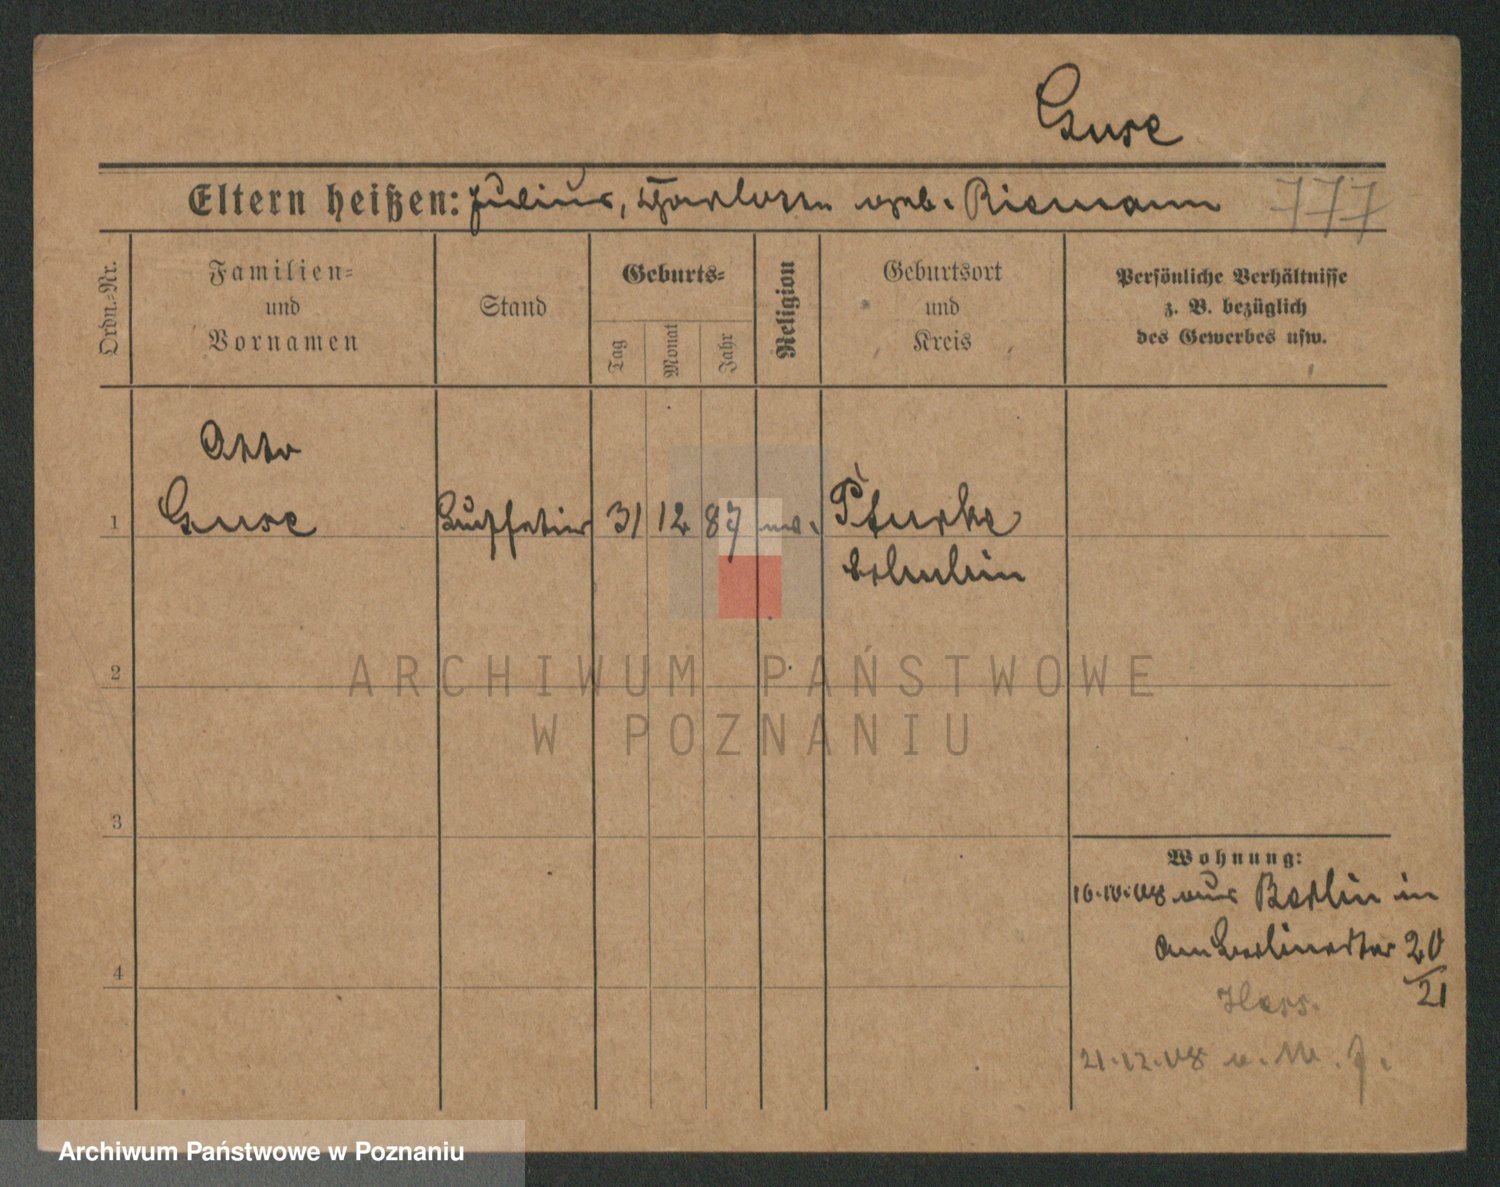 Guse
Eltern heißen: Julius, Charlotte geb. Riemann 777
Ordn.-Nr.
Familien-
und
Vornamen
Stand
Geburts-
Tag
Monat
Jahr
Religion
Geburtsort
und
Kreis
Persönliche Verhältnisse
z. B. bezüglich
des Gewerbes usw.
Otto
1 Guse 31 12 87
2
3
4
Wohnung:
10.10.08 aus Berlin in
Am Berlinertor 20/21
21.12.08
ARCHIWUM PAŃSTWOWE
W POZNANIU
Archiwum Państwowe w Poznaniu